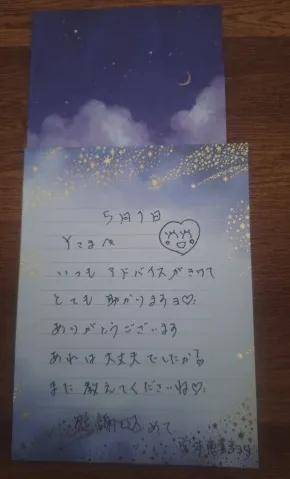 5月1日
Yさまへ
いつもアドバイスがきけて
とても助かります♡
ありがとうございます
あれは大丈夫でしたか
また教えてくださいね♡
感謝込めて